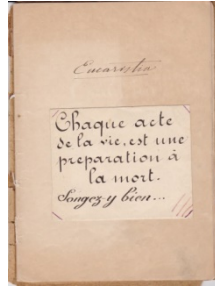 Eucaristia
Chaque acte
de la vie, est une
preparation à
la mort.
Songez y bien...